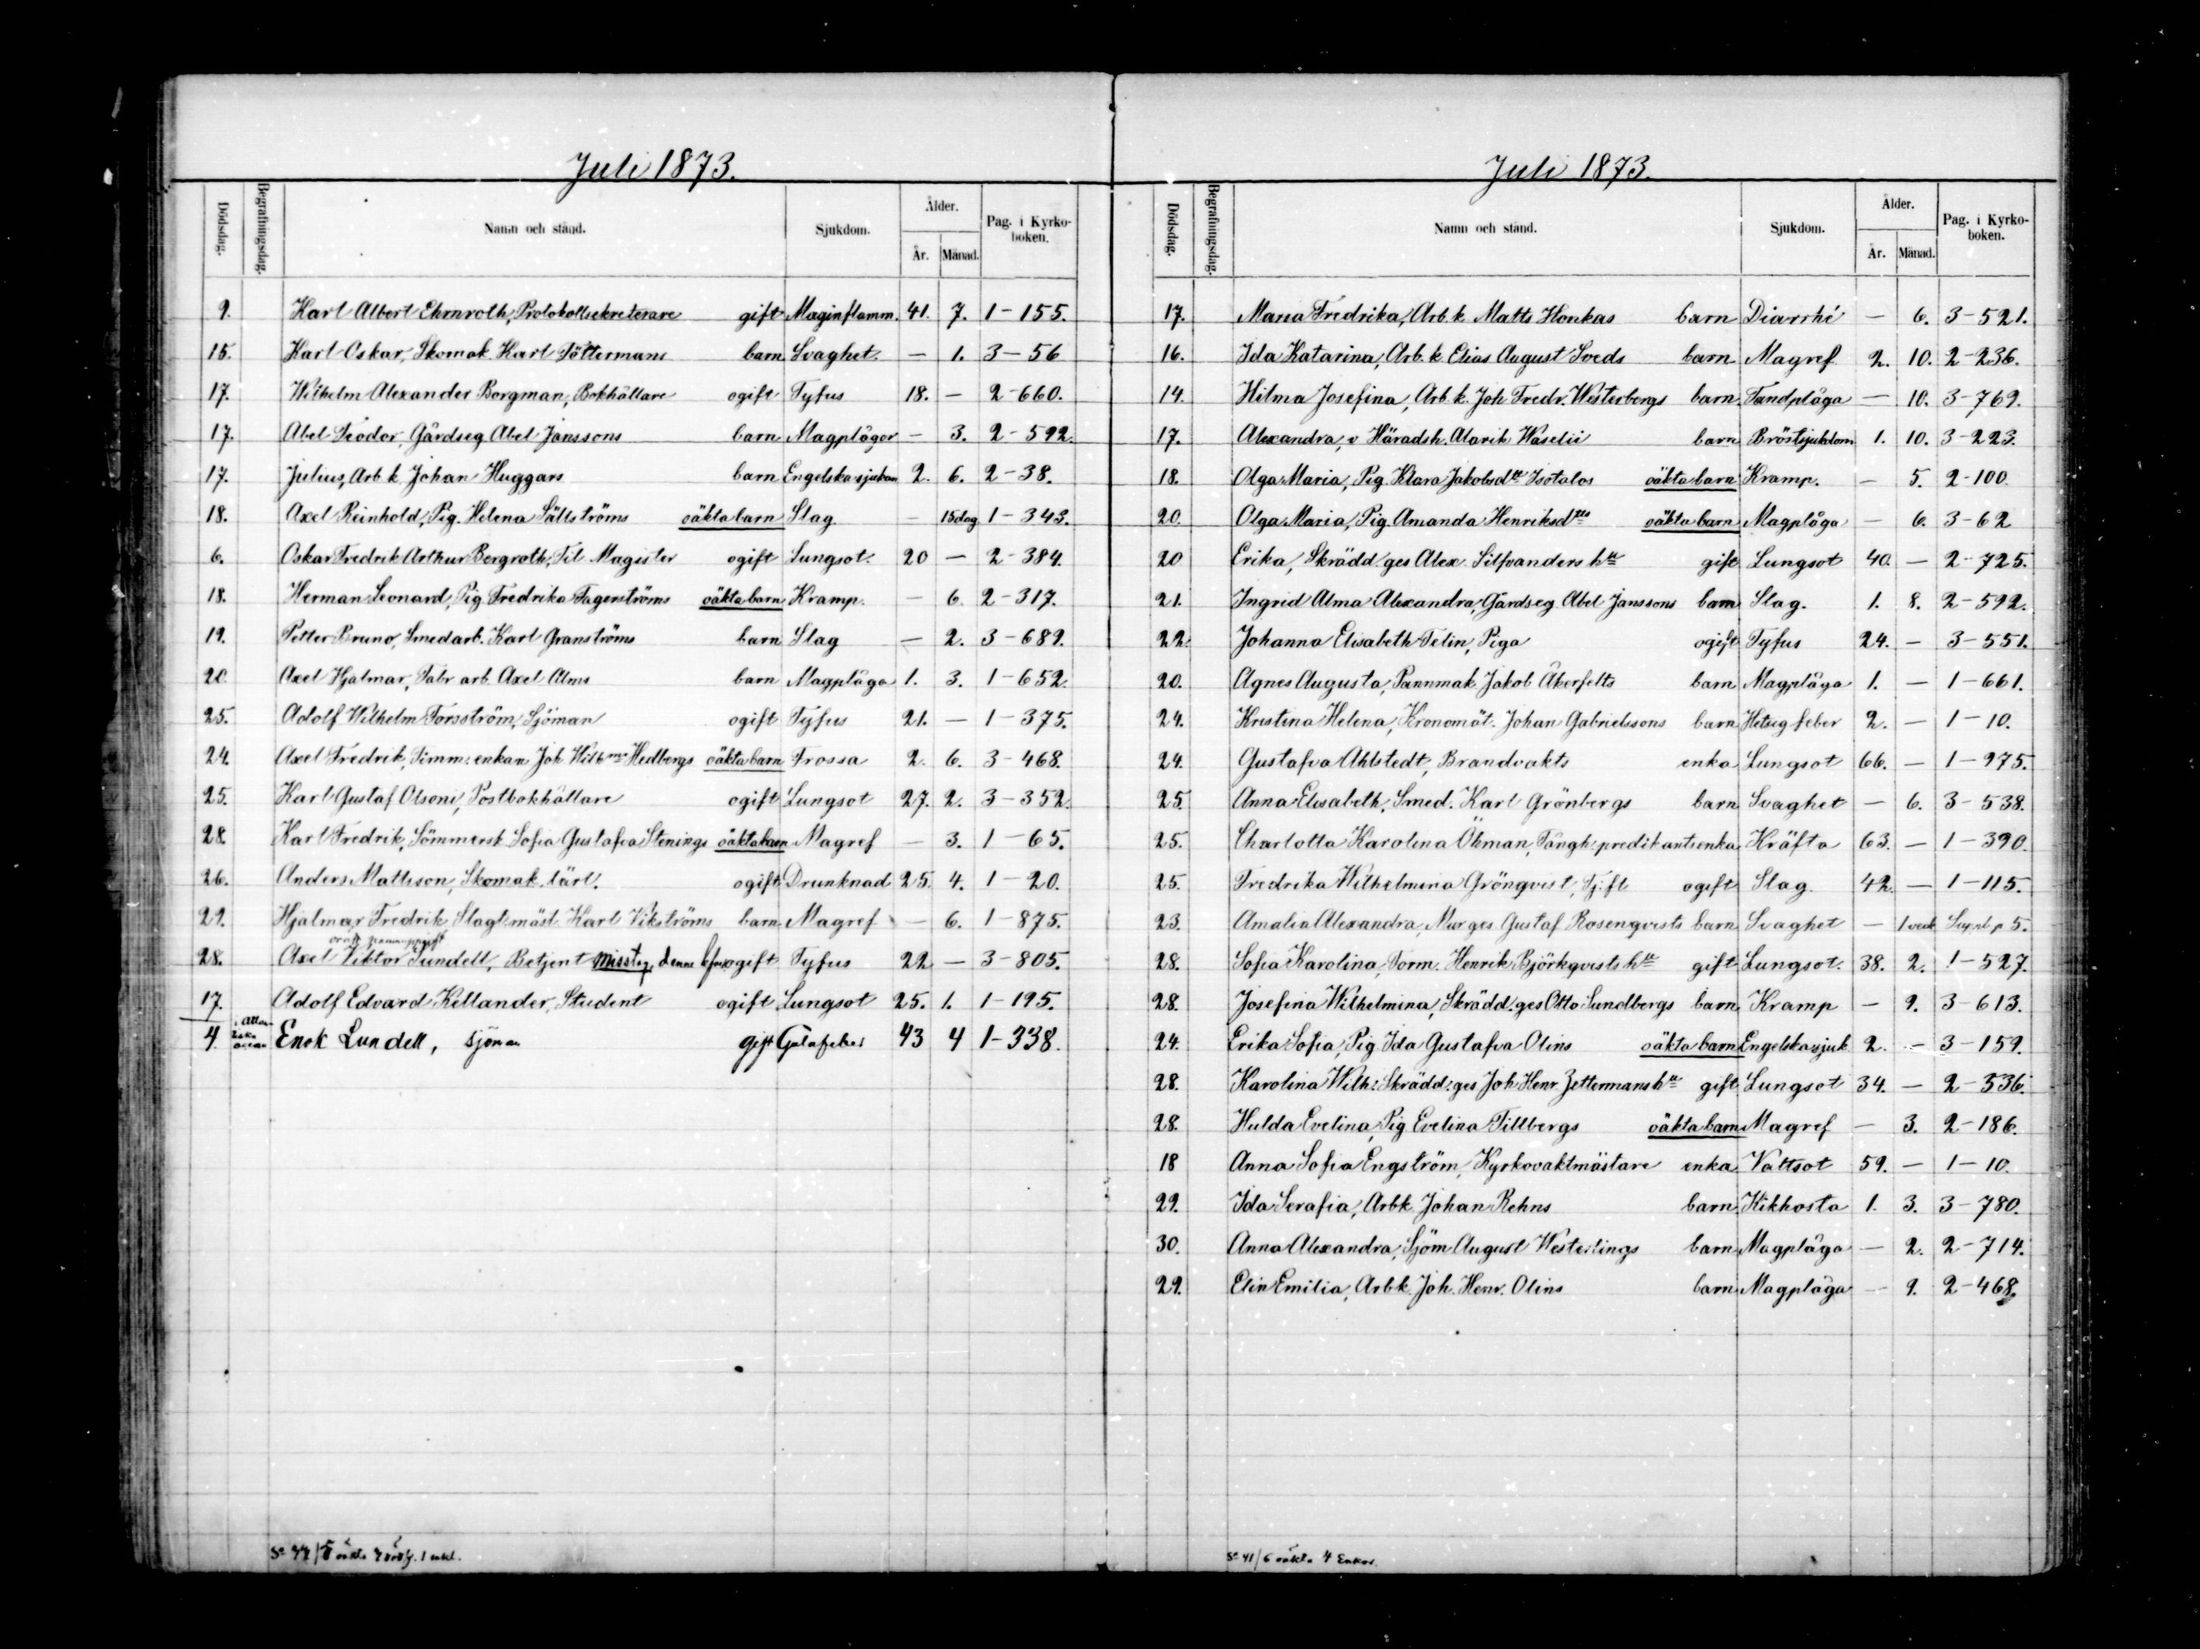 Juli 1873.
Dödsdag. Begrafningsdag. Namn och stånd. Sjukdom. Ålder. År. Månad. Pag. i Kyrkoboken.
9. Karl Albert Ehrnroth, Protokollsekreterare gift Maginflamm. 41. 7. 1-155.
15. Karl Oskar, Skomak. Karl Pöttermans barn Svaghet. — 1. 3-56
17. Wilhelm Alexander Borgman, Bokhållare ogift Tyfus 18. — 2-660.
17. Abel Teodor, Gårdseg. Abel Janssons barn Magplågor — 3. 2-592.
17. Julius, Arb.k. Johan Huggars barn Engelska sjukan 2. 6. 2-38.
18. Axel Reinhold, Pig. Helena Sällströms oäkta barn Slag — 15 dag 1-343.
6. Oskar Fredrik Arthur Bergroth, Fil. Magister ogift Lungsot. 20 — 2-384.
18. Herman Leonard, Pig. Fredrika Fagerströms oäkta barn Kramp. — 6. 2-317.
19. Petter Bruno, Smedarb. Karl Granströms barn Slag — 2. 3-689.
20. Axel Hjalmar, Fabr. arb. Axel Alms barn Magplåga 1. 3. 1-652.
25. Adolf Wilhelm Forsström, Sjöman ogift Tyfus 21. — 1-375.
24. Axel Fredrik, Timm: enkan Joh. Wilh:na Hedbergs oäkta barn Frossa 2. 6. 3-468.
25. Karl Gustaf Olsoni, Postbokhållare ogift Lungsot 27. 2. 3-352.
28. Karl Fredrik, Sömmersk. Sofia Gustafva Stenings oäkta barn Magref — 3. 1-65.
26. Anders Mattsson, Skomak. lärl. ogift Drunknad 25. 4. 1-20.
29. Hjalmar Fredrik, Slagt.mäst. Karl Vikströms barn Magref — 6. 1-875.
28. Axel Viktor Sundell, Betjent misstag, denne ogift Tyfus 22 — 3-805.
17. Adolf Edvard Kellander, Student ogift Lungsot 25. 1. 1-195.
4. Enok Lundell, sjöman gift Gulafeber 43 4 1-338.
Juli 1873.
Dödsdag. Begrafningsdag. Namn och stånd. Sjukdom. Ålder. År. Månad. Pag. i Kyrkoboken.
17. Maria Fredrika, Arb.k. Matts Honkas barn Diarrhé — 6. 3-521.
16. Ida Katarina, Arb.k. Elias August Sveds barn Magref 2. 10. 2-236.
14. Hilma Josefina, Arb.k. Joh. Fredr. Westerbergs barn Tandplåga — 10. 3-769.
17. Alexandra, v. Häradsh. Alarik Waselii barn Bröstsjukdom 1. 10. 3-223.
18. Olga Maria, Pig. Klara Jakobsdtr Isotalos oäkta barn Kramp. — 5. 2-100.
20. Olga Maria, Pig. Amanda Henriksdtrs oäkta barn Magplåga — 6. 3-62
20 Erika, Skrädd.ges. Alex. Silfvanders h:u gift Lungsot 40. — 2-725.
21. Ingrid Alma Alexandra, Gårdseg. Abel Janssons barn Slag. 1. 8. 2-592.
22. Johanna Elisabeth Felin, Piga ogift Tyfus 24. — 3-551.
20. Agnes Augusta, Pannmak. Jakob Åkerfelts barn Magplåga 1. — 1-661.
24. Kristina Helena, Kronomät. Johan Gabrielssons barn Hetsig feber 2. — 1-10.
24. Gustafva Ahlstedt, Brandvakts enka Lungsot 66. — 1-975.
25. Anna Elisabeth, Smed. Karl Grönbergs barn Svaghet — 6. 3-538.
25. Charlotta Karolina Öhman, Fångh: predikantsenka Kräfta 63. — 1-390.
25. Fredrika Wilhelmina Grönqvist, Tj.fl. ogift Slag. 42. — 1-115.
23. Amalia Alexandra, Mur.ges. Gustaf Rosenqvists barn Svaghet — 1 veck. p 5.
28. Sofia Karolina, Form. Henrik Björkqvists h:u gift Lungsot. 38. 2. 1-527.
28. Josefina Wilhelmina, Skrädd.ges. Otto Sundbergs barn Kramp — 9. 3-613.
24. Erika Sofia, Pig. Ida Gustafva Olins oäkta barn Engelska sjuk. 2. — 3-159.
28. Karolina Wilh: Skrädd: ges. Joh. Henr. Zettermans h:u gift Lungsot 34. — 2-536.
28. Hulda Evelina, Pig. Evelina Tillbergs oäkta barn Magref — 3. 2-186.
18 Anna Sofia Engström, Kyrkovaktmästare enka Vattsot 59. — 1-10.
29. Ida Serafia, Arbk. Johan Rehns barn Kikhosta 1. 3. 3-780.
30. Anna Alexandra, Sjöm. August Westerlings barn Magplåga — 2. 2-714.
29. Elin Emilia, Arbk. Joh. Henr. Olins barn Magplåga — 9. 2-468.
S:a 41/6 oäkta 4 Enkor.